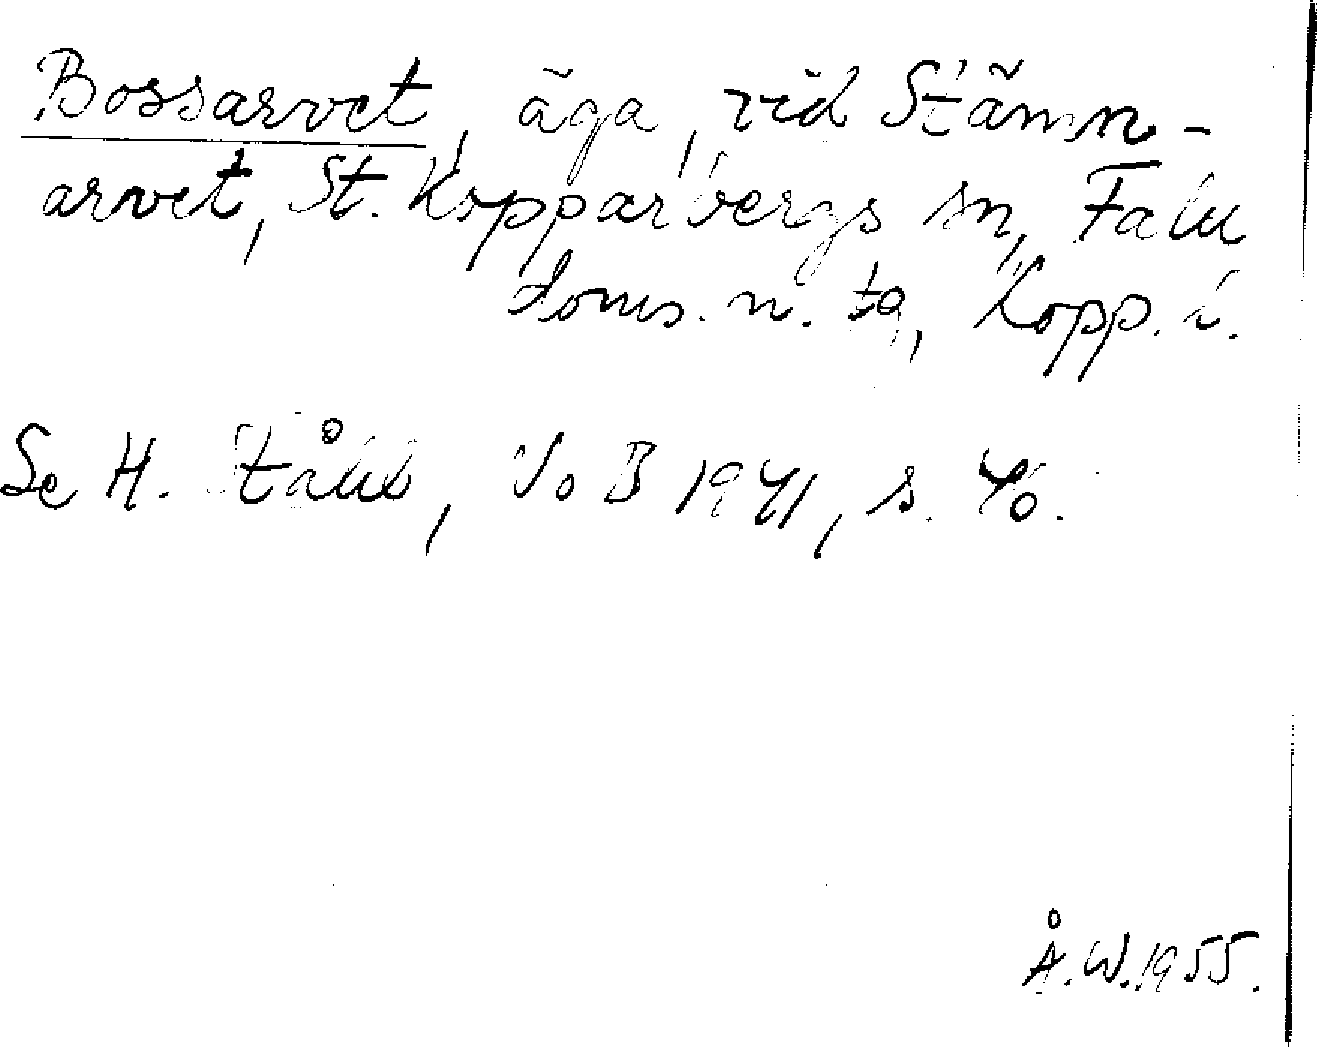 Bossarvet, äga, vid Stämn-
arvet, St. Kopparbergs sn, Falu
doms. n. tg, Kopp. l.
Se H. Ståhl, VoB 1941, s. 46.
Å.W.1955.